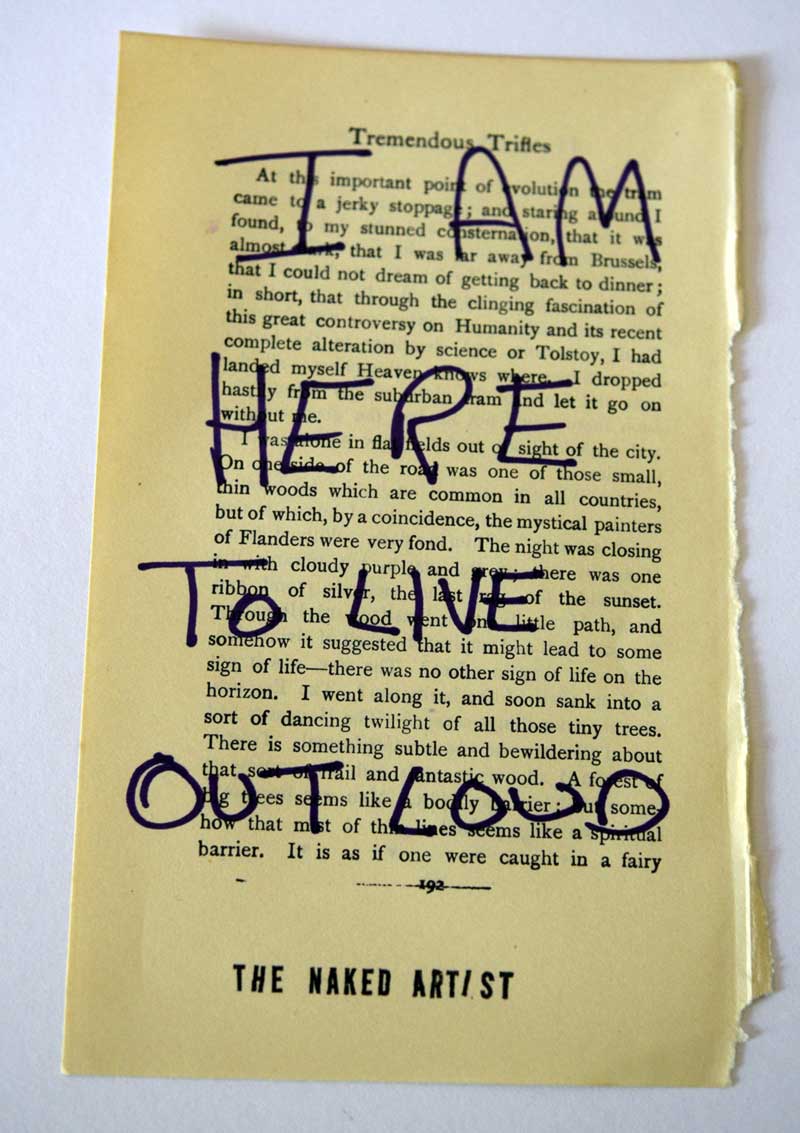 Tremendous Trifles
I AM
At this important point of evolution the tram
came to a jerky stoppage; and staring around I
found, to my stunned consternation, that it was
almost dark, that I was far away from Brussels,
that I could not dream of getting back to dinner;
in short, that through the clinging fascination of
this great controversy on Humanity and its recent
complete alteration by science or Tolstoy, I had
landed myself Heaven knows where. I dropped
HERE
hastily from the suburban tram and let it go on
without me.
I was alone in flat fields out of sight of the city.
On one side of the road was one of those small,
thin woods which are common in all countries,
but of which, by a coincidence, the mystical painters
of Flanders were very fond. The night was closing
in with cloudy purple and grey; there was one
TO LIVE
ribbon of silver, the last rag of the sunset.
Through the wood went one little path, and
somehow it suggested that it might lead to some
sign of life—there was no other sign of life on the
horizon. I went along it, and soon sank into a
sort of dancing twilight of all those tiny trees.
There is something subtle and bewildering about
that sort of frail and fantastic wood. A forest of
OUT LOUD
big trees seems like a bodily barrier; but some-
how that mist of thin lines seems like a spiritual
barrier. It is as if one were caught in a fairy
192
THE NAKED ARTIST